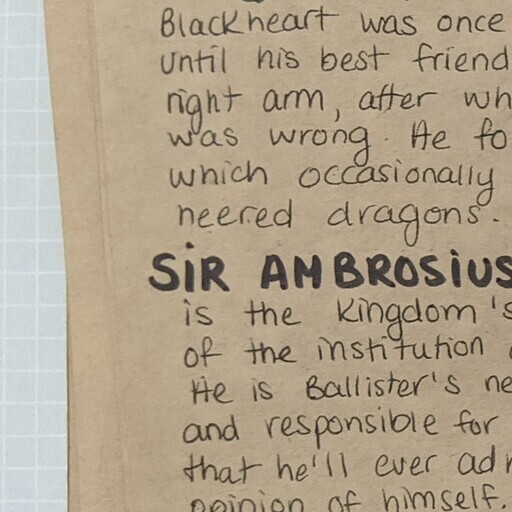 Blackheart was once
until his best friend
right arm, after wh
was wrong. He fo
which occasionally
neered dragons.
SiR AMBROSiUS
is the kingdom's
of the institution
He is Ballister's ne
and responsible for
that he'll ever ad
opinion of himself.